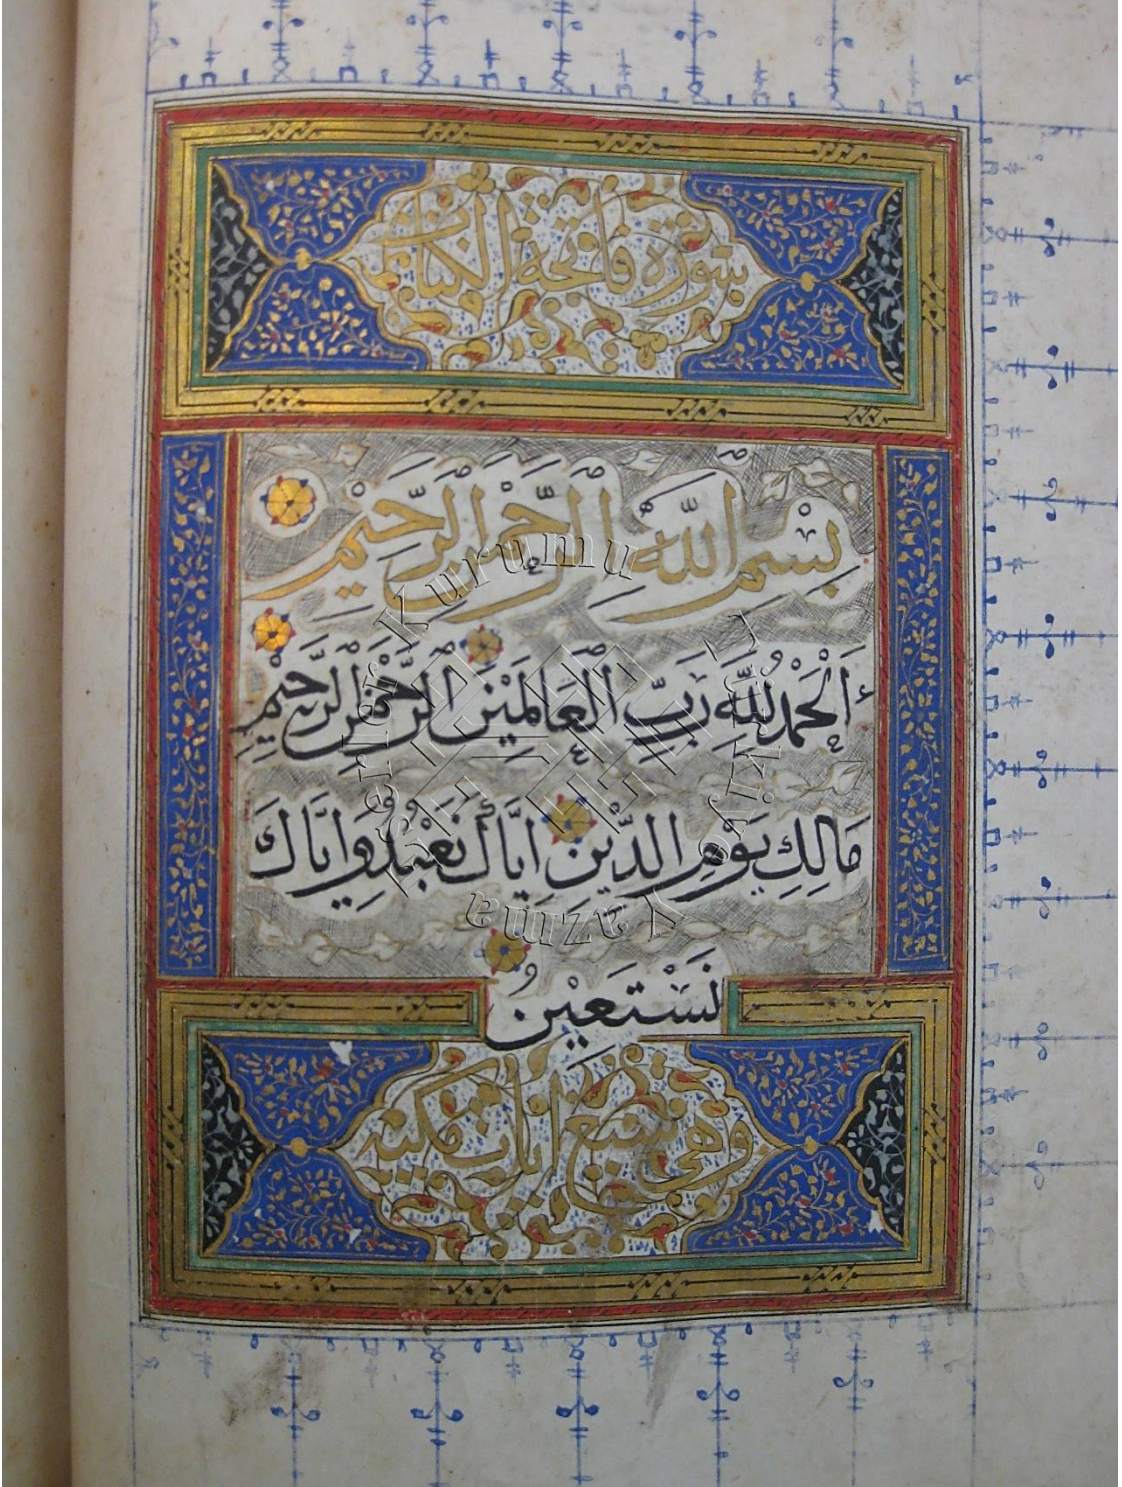 سورة فاتحة الكتاب
بِسْمِ اللَّهِ الرَّحْمٰنِ الرَّحِيْمِ
اَلْحَمْدُ لِلَّهِ رَبِّ الْعَالَمِيْنَ الرَّحْمٰنِ الرَّحِيْمِ
مَالِكِ يَوْمِ الدِّيْنِ اِيَّاكَ نَعْبُدُ وَاِيَّاكَ
نَسْتَعِيْنُ
وهي سبع ايات مكية
Türkiye Yazma Eserler Kurumu